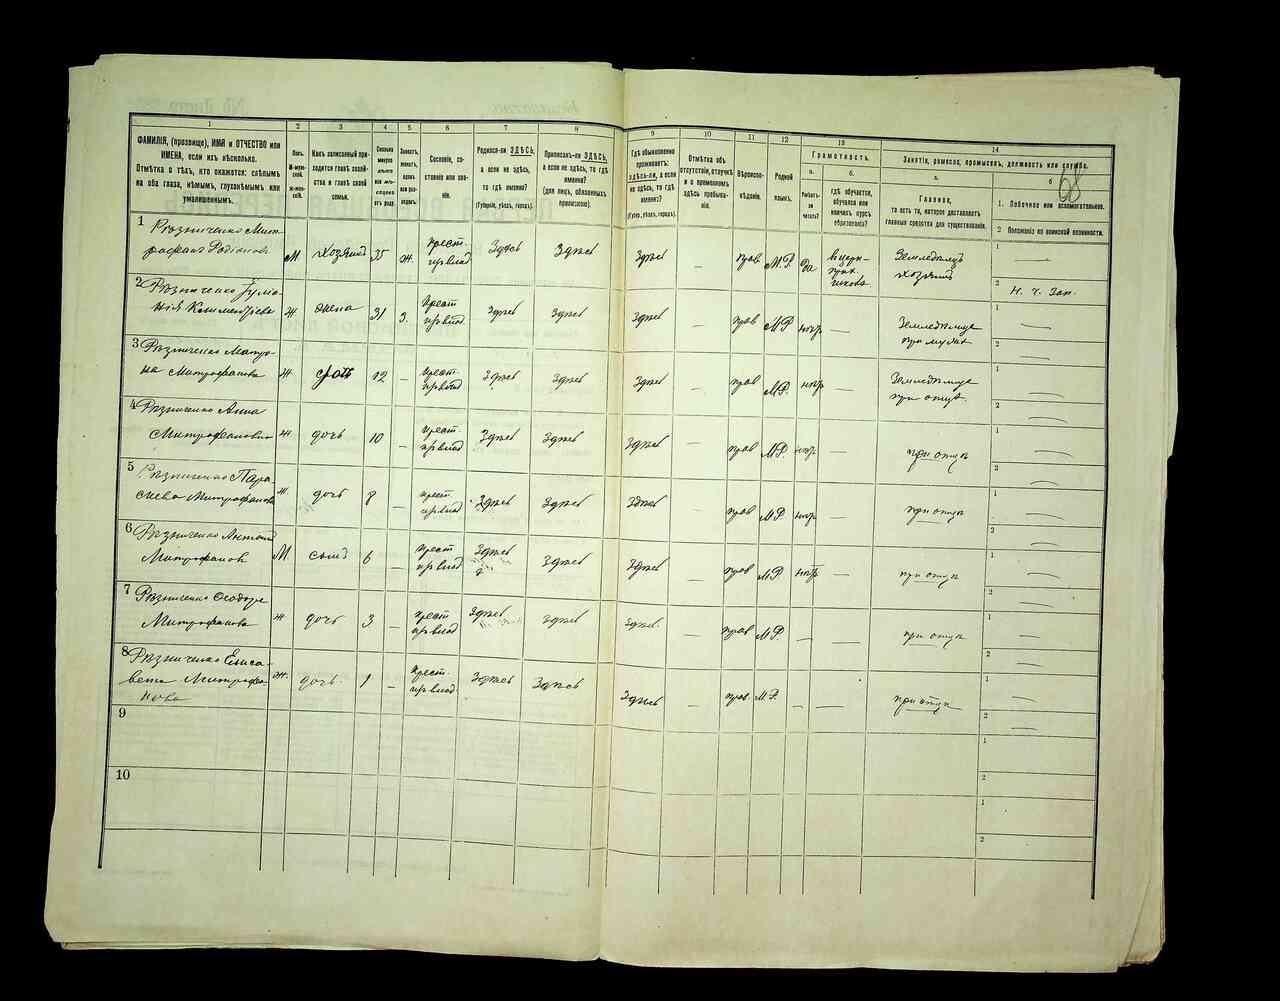 1 2 3 4 5 6 7 8 9 10 11 12 13 14
ФАМИЛІЯ, (прозвище), ИМЯ и ОТЧЕСТВО или
ИМЕНА, если ихъ нѣсколько.
Отмѣтка о тѣхъ, кто окажется: слѣпымъ
на оба глаза, нѣмымъ, глухонѣмымъ или
умалишеннымъ.
Полъ.
М-муж-
ской.
Ж-жен-
скій.
Какъ записанный при-
ходится главѣ хозяй-
ства и главѣ своей
семьи.
Сколько
минуло
лѣтъ
или мѣ-
сяцевъ
отъ роду.
Сословіе, со-
стояніе или зва-
ніе.
Родился-ли ЗДѢСЬ,
а если не здѣсь,
то гдѣ именно?
(Губернія, уѣздъ, городъ).
Приписанъ-ли ЗДѢСЬ,
а если не здѣсь, то гдѣ
именно?
(для лицъ, обязанныхъ
припискою).
Гдѣ обыкновенно
проживаетъ:
ЗДѢСЬ-ли, а если
не здѣсь, то гдѣ
именно?
(Губер., уѣздъ, городъ).
Отмѣтка объ
отсутствіи, отлучкѣ
и о временномъ
здѣсь пребыва-
ніи.
Вѣроиспо-
вѣданіе.
Родной
языкъ.
Грамотность.
а.
Умѣетъ-
ли
читать?
б.
гдѣ обучается,
обучался или
кончилъ курсъ
образованія?
Занятіе, ремесло, промыселъ, должность или служба.
а.
Главное,
то есть то, которое доставляетъ
главныя средства для существованія.
б.
68
1. Побочное или вспомогательное.
2 Положеніе по воинской повинности.
1 Рѣзниченко Мит-
рофанъ Родіоновъ М хозяинъ 35 ж. крест. Здѣсь Здѣсь Здѣсь — прав М.Р. да
Земледѣлецъ
хозяинъ
1 —
2 Н. ч. Зап.
2 Рѣзниченко
Ж жена 31 З. крест Здѣсь Здѣсь Здѣсь — прав М.Р. нѣтъ —
Земледѣлица
при мужѣ
3 Рѣзниченко Матро-
на Митрофанова Ж. дочь 12 — крест. Здѣсь Здѣсь Здѣсь — прав М.Р. нѣтъ —
Земледѣлица
при отцѣ
4 Рѣзниченко Анна
Митрофановна Ж. дочь 10 — крест. Здѣсь Здѣсь Здѣсь — прав М.Р. нѣтъ —
при отцѣ
5 Рѣзниченко Пара-
скева Митрофанова Ж. дочь 8 — крест. Здѣсь Здѣсь Здѣсь — прав М.Р. нѣтъ
при отцѣ
6 Рѣзниченко Антоній
Митрофановъ М сынъ 6 — крест Здѣсь Здѣсь Здѣсь — прав М.Р. нѣтъ —
при отцѣ
7 Рѣзниченко Ѳеодора
Митрофанова Ж дочь 3 — крест Здѣсь Здѣсь Здѣсь — прав М.Р. — —
при отцѣ
8 Рѣзниченко Елиса-
вета Митрофа-
нова Ж. дочь. 1 — крест. Здѣсь Здѣсь Здѣсь — прав М.Р. — —
при отцѣ
9
10